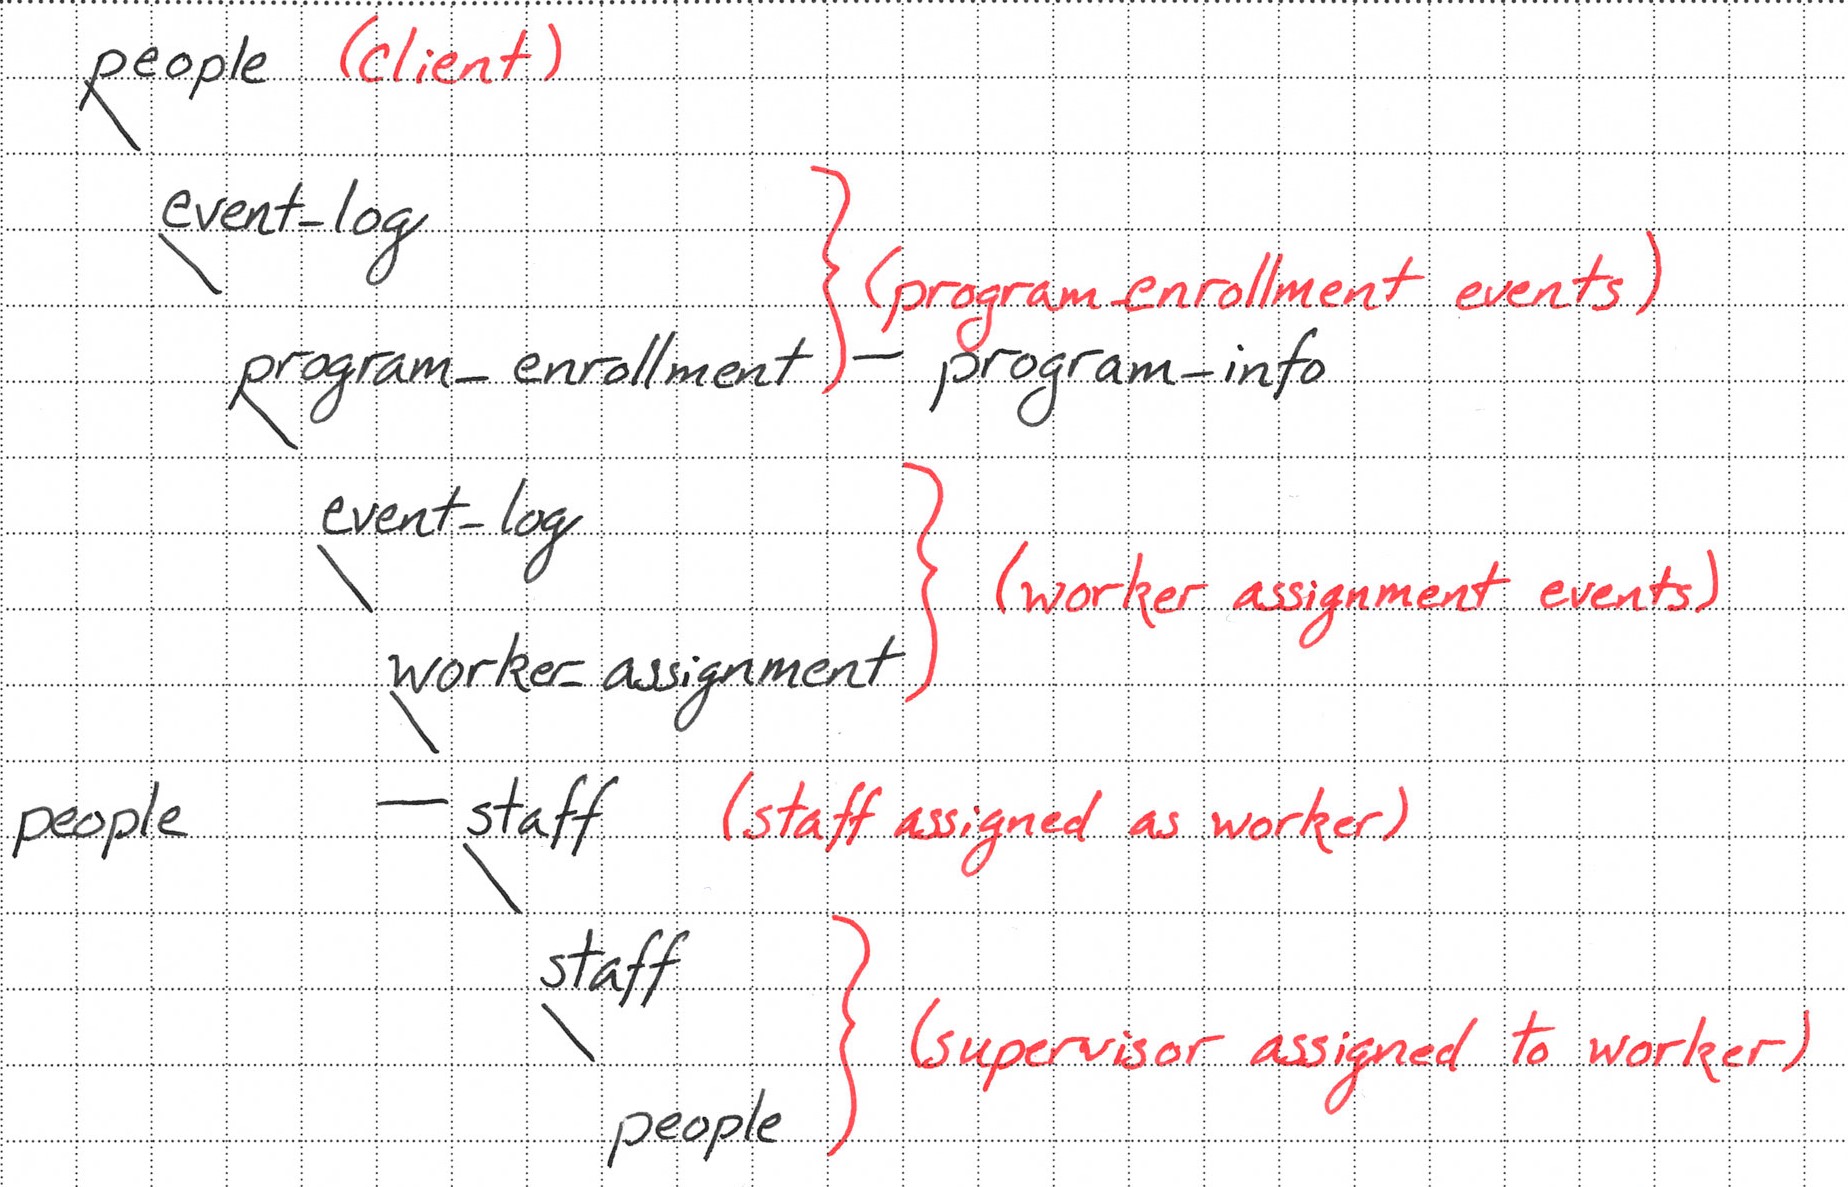 people (client)
event_log
(program enrollment events)
program_enrollment — program_info
event_log
(worker assignment events)
worker_assignment
people — staff (staff assigned as worker)
staff
(supervisor assigned to worker)
people